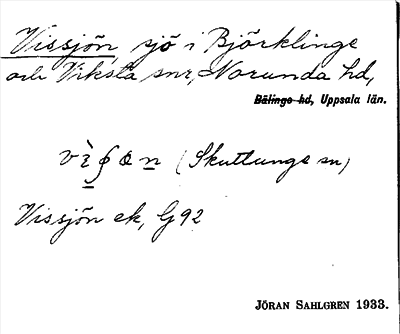 Vissjön, sjö i Björklinge
och Viksta snr, Norunda hd,
Bälinge hd, Uppsala län.
(Skuttunge sn)
Vissjön ek, G 92
JÖRAN SAHLGREN 1933.